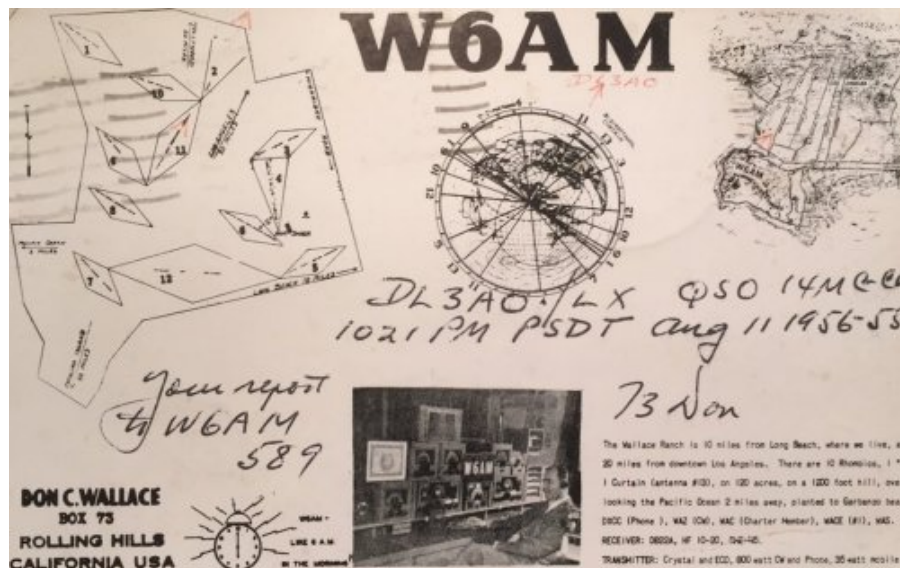 W6AM
DL3AO
DL3AO/LX QSO 14MC
1021 PM PSDT Aug 11 1956
your report
to W6AM
589
73 Don
DON C. WALLACE
BOX 73
ROLLING HILLS
CALIFORNIA USA
W6AM -
LIKE 6 A.M.
IN THE MORNING
The Wallace Ranch is 10 miles from Long Beach, where we live,
20 miles from downtown Los Angeles. There are 10 Rhombics, 1
1 Curtain (antenna #10), on 120 acres, on a 1200 foot hill, over
looking the Pacific Ocean 2 miles away, planted to Garbanzo
DXCC (Phone), WAZ (CW), WAC (Charter Member), WACE (#1), WAS.
RECEIVER: HF 10-20,
TRANSMITTER: Crystal and ECO, 800 watt CW and Phone, 35 watt mobile
1
2
10
11
6
8
3
4
5
7
12
LONG BEACH 10 MILES
LOS ANGELES
W6AM